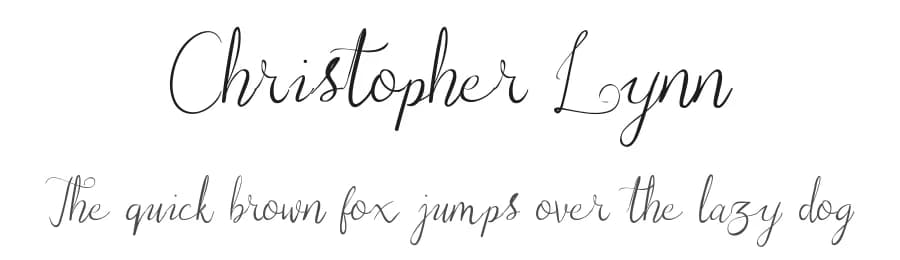 Christopher Lynn
The quick brown fox jumps over the lazy dog